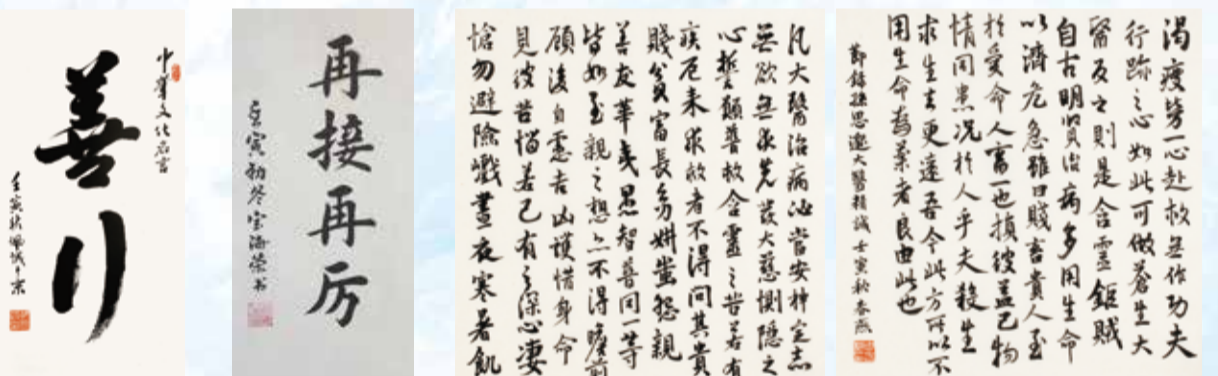 中華文化名言
善行
壬寅秋佩誠于京
再接再厉
壬寅初冬宝海荣书
凡大醫治病必當安神定志
無欲無求先發大慈惻隱之
心誓願普救含靈之苦若有
疾厄来求救者不得問其貴
賤貧富長幼妍蚩怨親
善友華夷愚智普同一等
皆如至親之想亦不得瞻前
顧後自慮吉凶護惜身命
見彼苦惱若己有之深心凄
愴勿避險巇晝夜寒暑飢
渴疲勞一心赴救無作功夫
行跡之心如此可做蒼生大
醫反之則是含靈鉅賊
自古明賢治病多用生命
以濟危急雖曰賤畜貴人至
於愛命人畜一也損彼益己物
情同患况於人乎夫殺生
求生去更遠吾今此方所以不
用生命為藥者良由此也
節錄孫思邈大醫精誠 壬寅秋 春燕